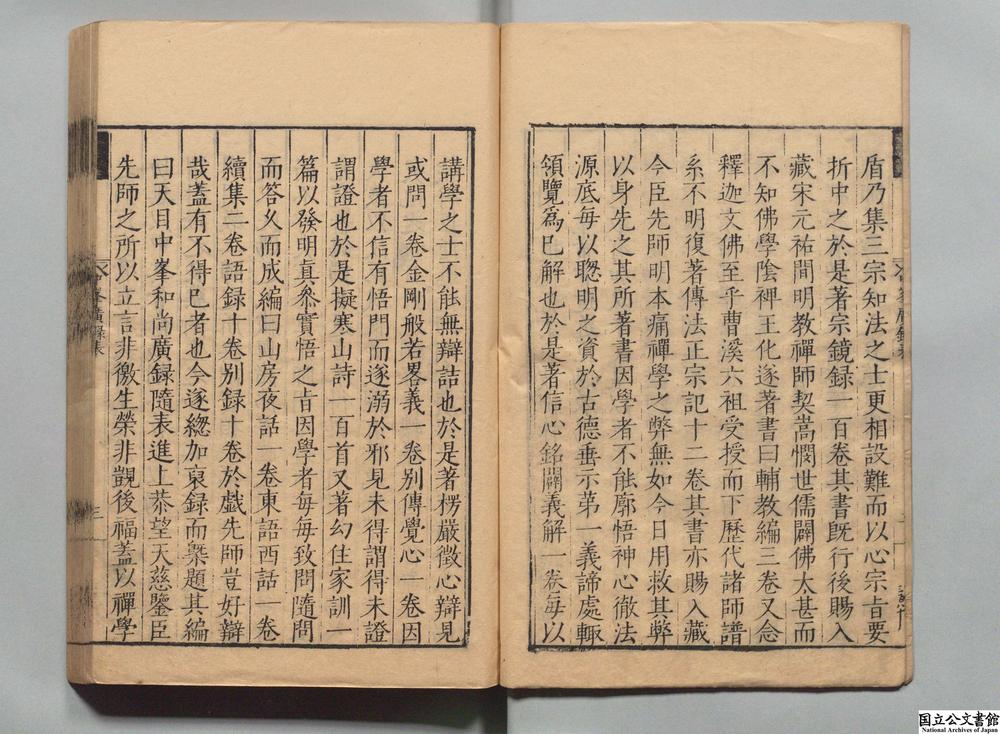 盾乃集三宗知法之士更相設難而以心宗旨要
折中之於是著宗鏡録一百卷其書既行後賜入
藏宋元祐間明教禪師契嵩憫世儒闢佛太甚而
不知佛學陰裨王化遂著書曰輔教編三卷又念
釋迦文佛至乎曹溪六祖受授而下歷代諸師譜
系不明復著傳法正宗記十二卷其書亦賜入藏
今臣先師明本痛禪學之弊無如今日用救其弊
以身先之其所著書因學者不能廓悟神心徹法
源底毎以聰明之資於古德垂示第一義諦處輙
領覽爲已解也於是著信心銘闢義解一卷毎以
講學之士不能無辯詰也於是著楞嚴徵心辯見
或問一卷金剛般若畧義一卷别傳覺心一卷因
學者不信有悟門而遂溺於邪見未得謂得未證
謂證也於是擬寒山詩一百首又著幻住家訓一
篇以發明真叅實悟之旨因學者毎毎致問隨問
而答久而成編曰山房夜話一卷東語西話一卷
續集二卷語録十卷别録十卷於戲先師豈好辯
哉蓋有不得已者也今遂緫加裒録而槩題其編
曰天目中峯和尚廣録隨表進上恭望天慈鑒臣
先師之所以立言非徼生榮非覬後福蓋以禪學
峯廣録表
三
国立公文書館
National Archives of Japan